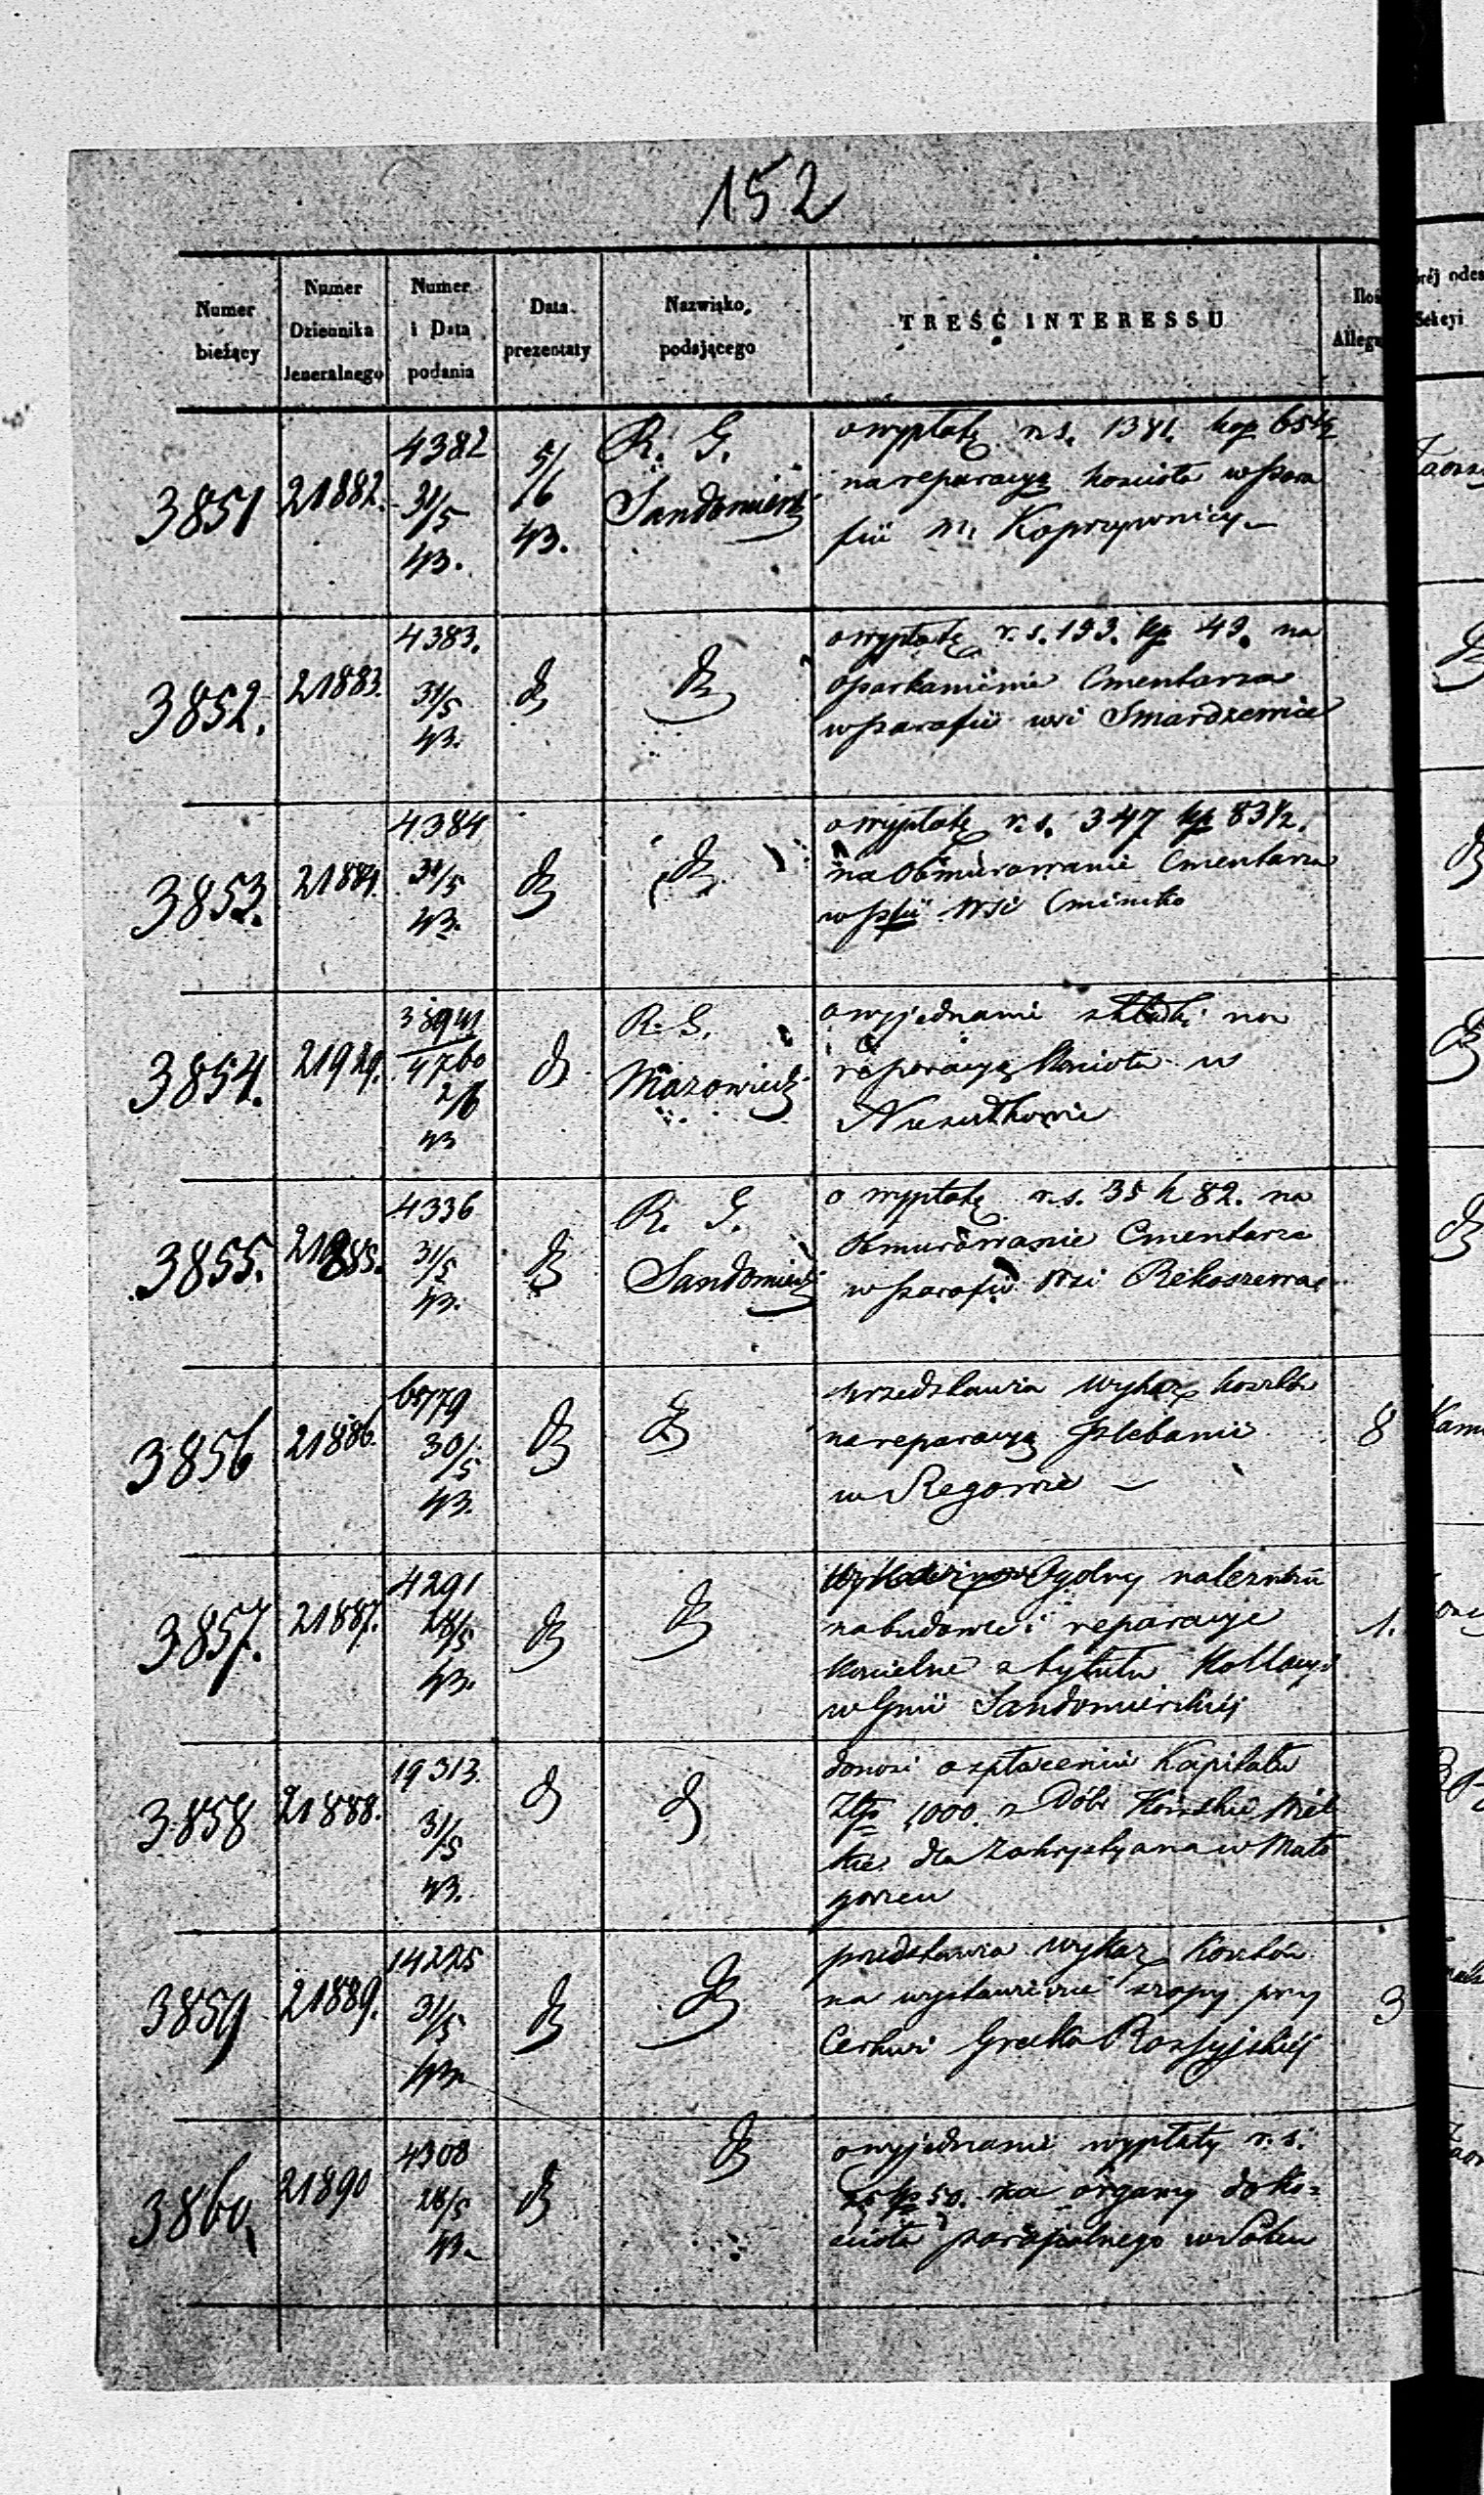 152
Numer bieżący
Numer Dziennika Jeneralnego
Numer i Data podania
Data prezentaty
Nazwisko podającego
TREŚĆ INTERESSU
3851 21882. 4382 31/5 43. 5/6 43. R. G. Sandomiersk
o wypłatę r. s. 1381. kop 65½
na reparacyą kościoła w Para
fii M. Koprzywnicy
3852. 21883. 4383. 31/5 43. dt dt
o wypłatę r. s. 193. kp 49. na
oparkanienie Cmentarza
w parafii wsi Smardzewice
3853. 21884. 4384 31/5 43. dt dt
o wypłatę r. s. 347 kp 83½.
na obmurowanie Cmentarza
w pfii wsi Cminsko
3854. 21929. 4760 2/6 43 dt R. G. Mazowieck
o wyjednanie składki na
reparacyą kościoła w
3855. 21885. 4336 31/5 43. dt R. G. Sandomiersk
o wypłatę r. s. 35 k 82. na
obmurowanie Cmentarza
w parafii wsi
3856 21886. 30/5 43. dt dt
przedstawia wykaz kosztów 8
na reparacyą plebanii
w Regowie
3857. 21887. 4291 28/5 43. dt dt
ogólny należności 1.
na budowle i reparacye
kościelne z tytułu Kollacyi
w Gnii Sandomierskiéj
3858 21888. 19313. 31/5 43. dt dt
donosi o spłaceniu Kapitału
Złp 1000. z Dóbr Końskie Wiel
kie dla Zakrystyana w Mało
goszczu
3859 21889. 14225 31/5 43. dt dt
przedstawia wykaz kosztów
na wystawienie szopy przy 3
Cerkwi Grecko Rossyjskiéj
3860. 21890 4308 28/5 43. dt dt
o wyjednanie wypłaty r. s.
25 kp 50. na organy do ko-
ścioła parafialnego w